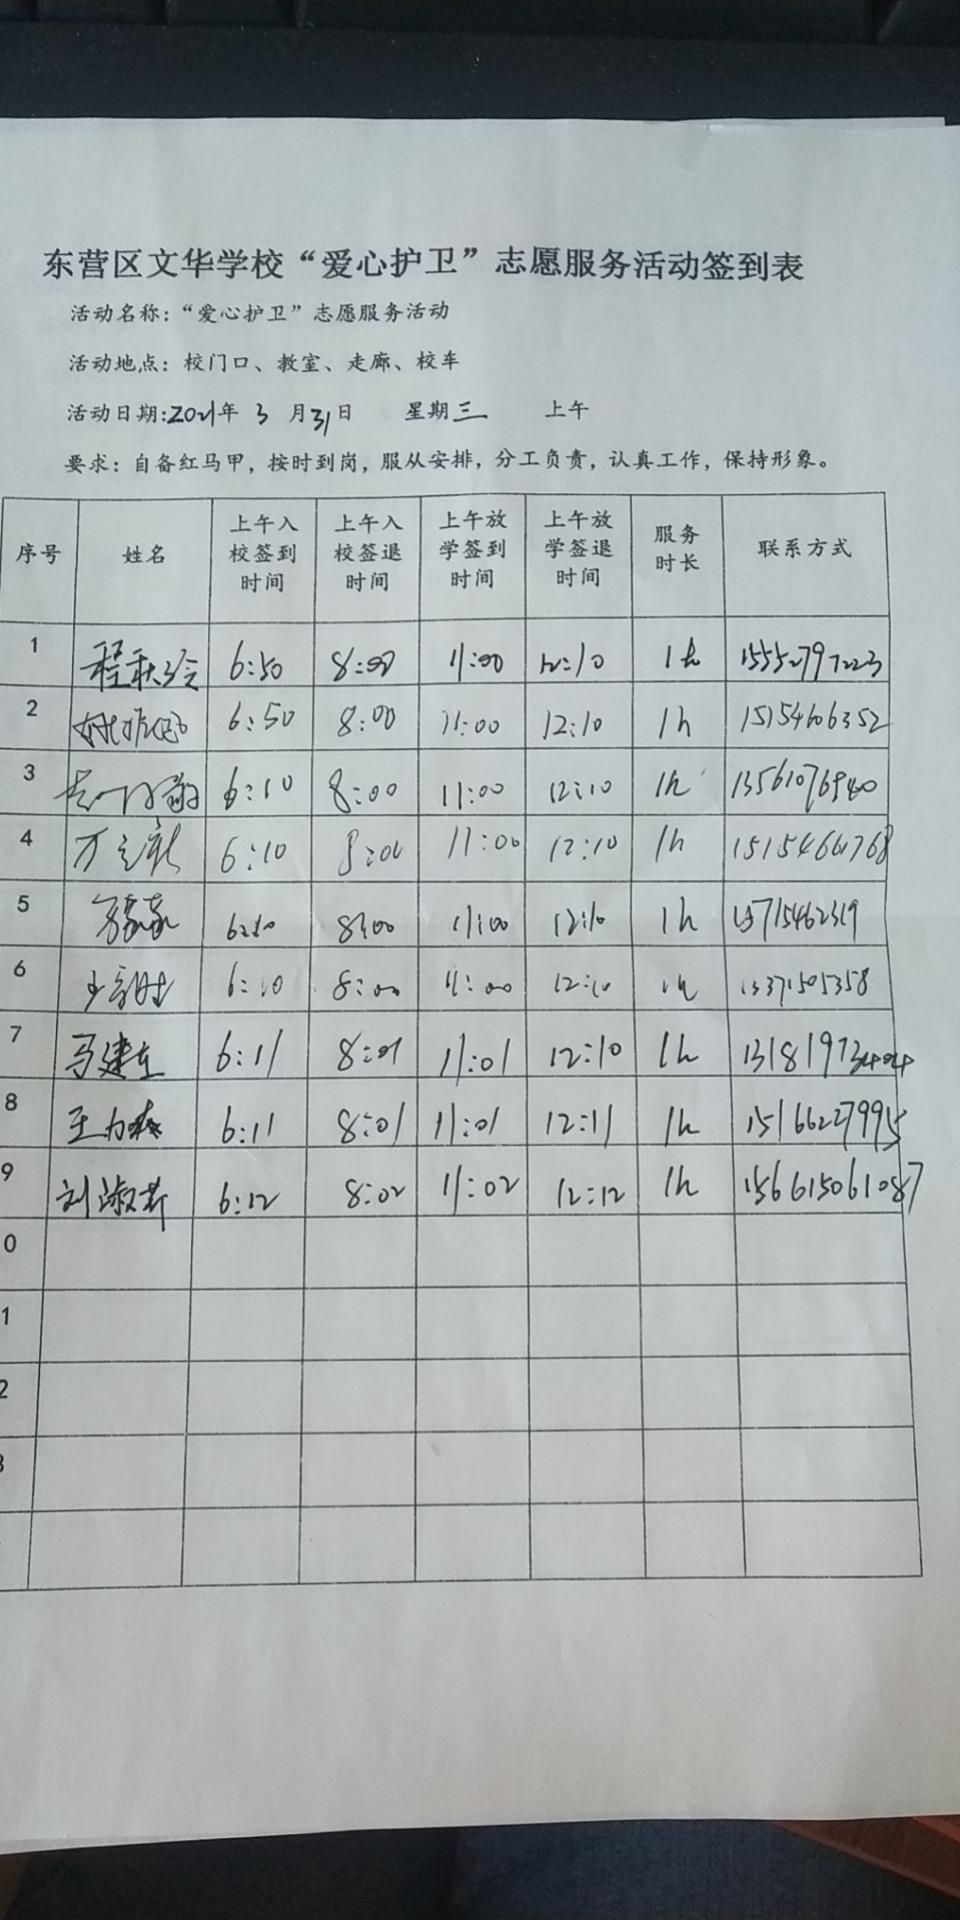 东营区文华学校“爱心护卫”志愿服务活动签到表
活动名称：“爱心护卫”志愿服务活动
活动地点：校门口、教室、走廊、校车
活动日期:2021年 3 月 31日 星期三 上午
要求：自备红马甲，按时到岗，服从安排，分工负责，认真工作，保持形象。
序号 姓名 上午入校签到时间 上午入校签退时间 上午放学签到时间 上午放学签退时间 服务时长 联系方式
1 6:50 8:00 11:00 12:10 1h 15552797223
2 6:50 8:00 11:00 12:10 1h 15154606352
3 6:10 8:00 11:00 12:10 1h
4 6:10 8:00 11:00 12:10 1h
5 6:10 8:00 11:00 12:10 1h 15715462319
6 6:10 8:00 11:00 12:10 1h 13371505358
7 马建 6:11 8:01 11:01 12:10 1h 13181973404
8 王力 6:11 8:01 11:01 12:11 1h 15166227995
9 刘淑 6:12 8:02 11:02 12:12 1h 156615061087
0
1
2
3